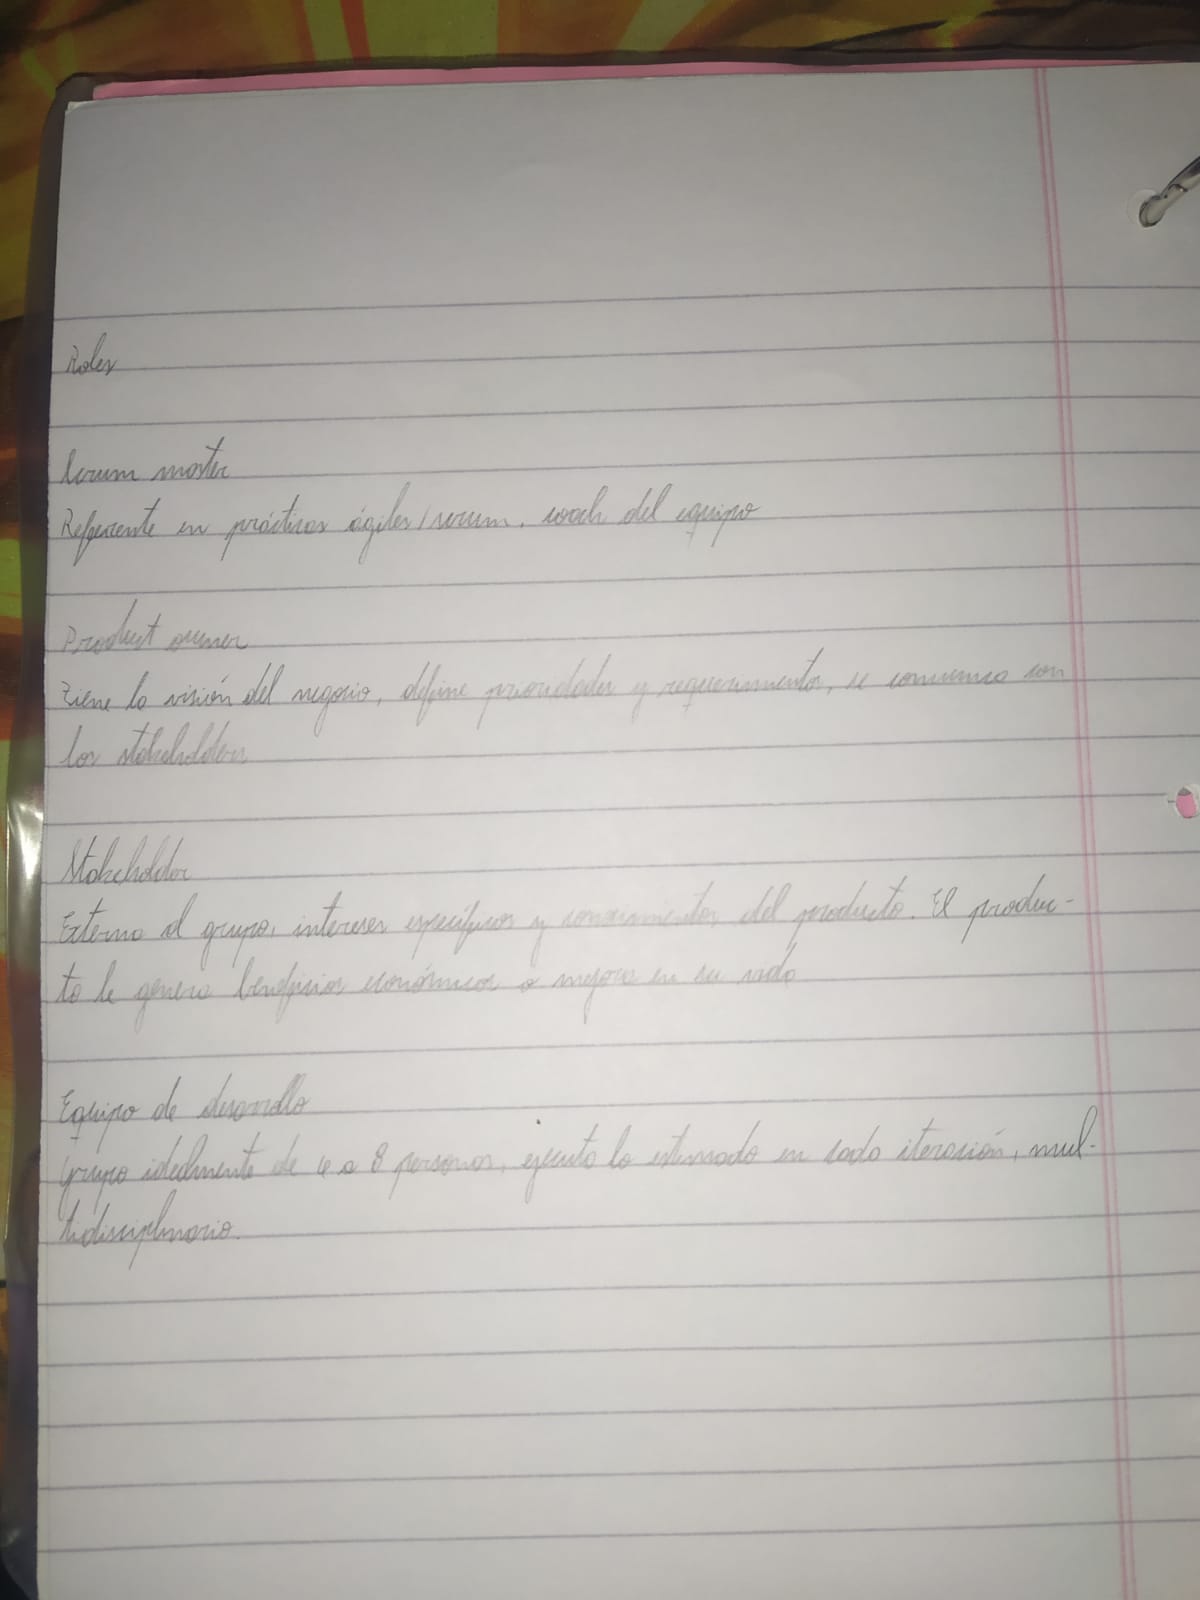 Roles
Scrum master
Referente en prácticas ágiles/scrum, coach del equipo
Product owner
Tiene la visión del negocio, define prioridades y requerimientos, se comunica con
los stakeholders
Stakeholder
Externo al grupo, intereses específicos y conocimientos del producto. El produc-
to le genera beneficios económicos o mejora en su
Equipo de desarrollo
Grupo idealmente de a 8 personas, ejecuta lo estimado en cada iteración, mul-
tidisciplinario.